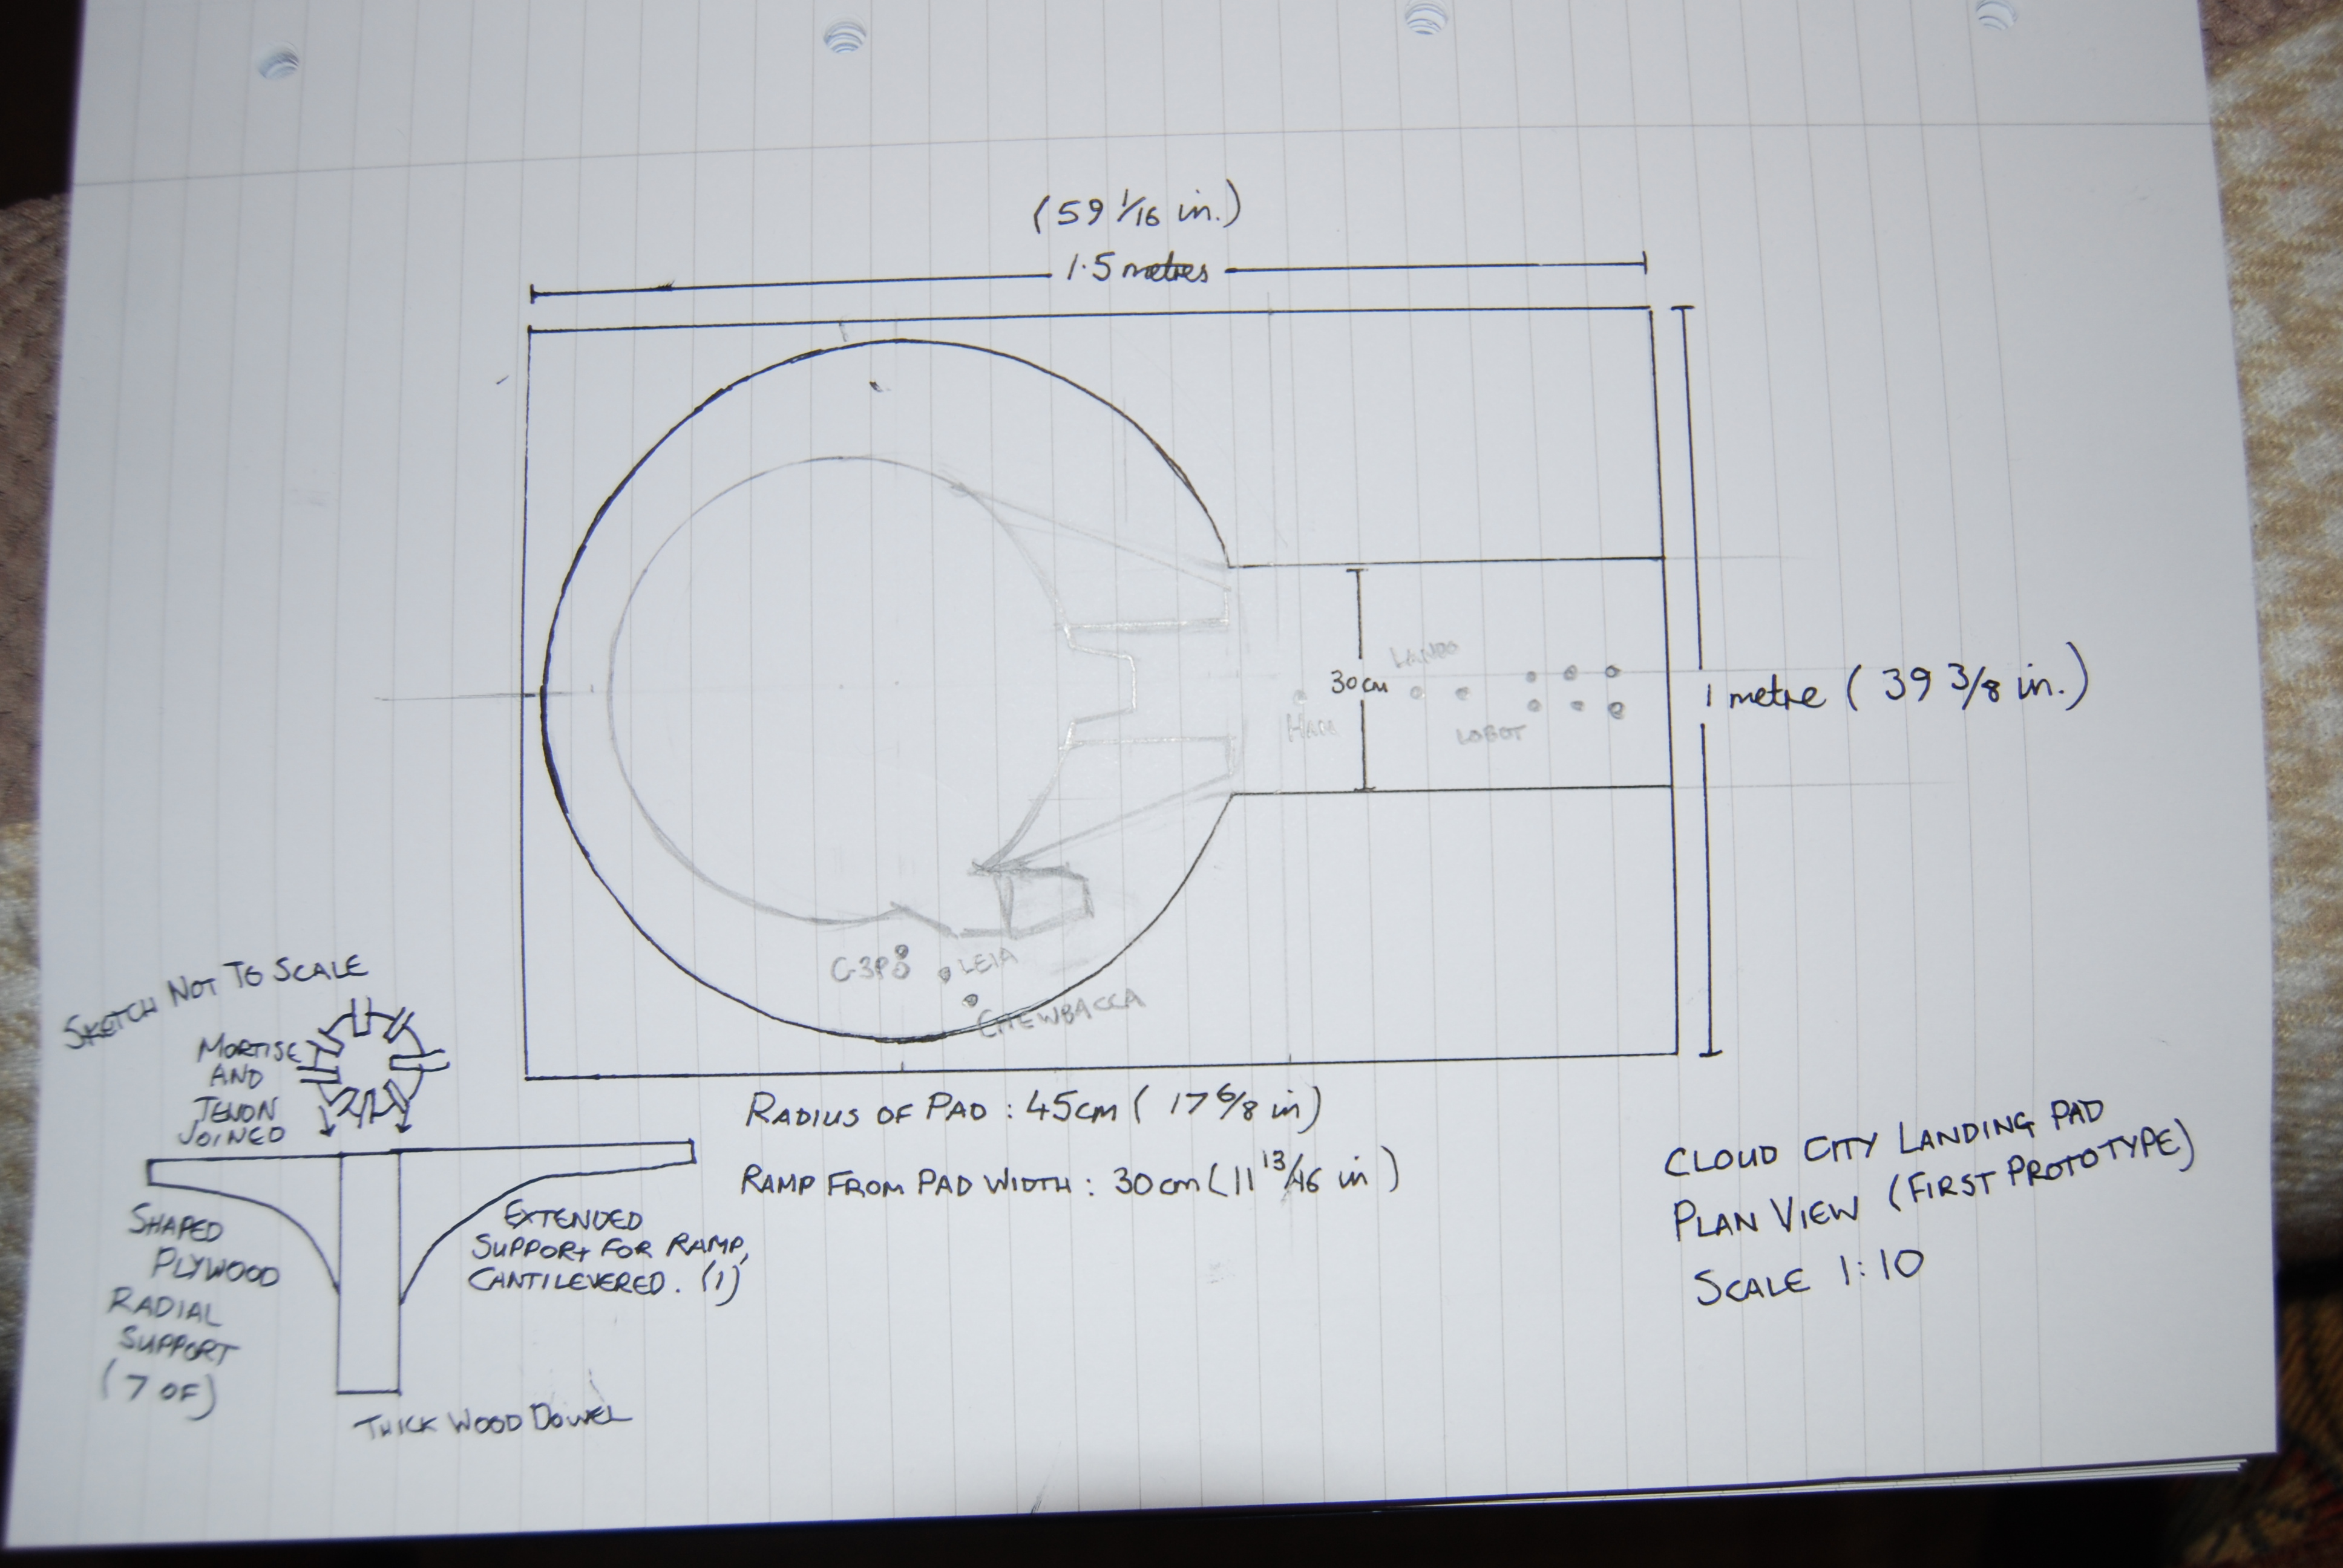 (59 1/16 in.)
1.5 metres
LANDO
30cm
HAN
LOBOT
1 metre (39 3/8 in.)
C-3PO
LEIA
CHEWBACCA
SKETCH NOT TO SCALE
MORTISE
AND
TENON
JOINED
RADIUS OF PAD : 45cm ( 17 6/8 in)
RAMP FROM PAD WIDTH : 30cm (11 13/16 in )
SHAPED
PLYWOOD
RADIAL
SUPPORT
(7 OF)
EXTENDED
SUPPORT FOR RAMP,
CANTILEVERED. (1)
THICK WOOD DOWEL
CLOUD CITY LANDING PAD
PLAN VIEW (FIRST PROTOTYPE)
SCALE 1:10